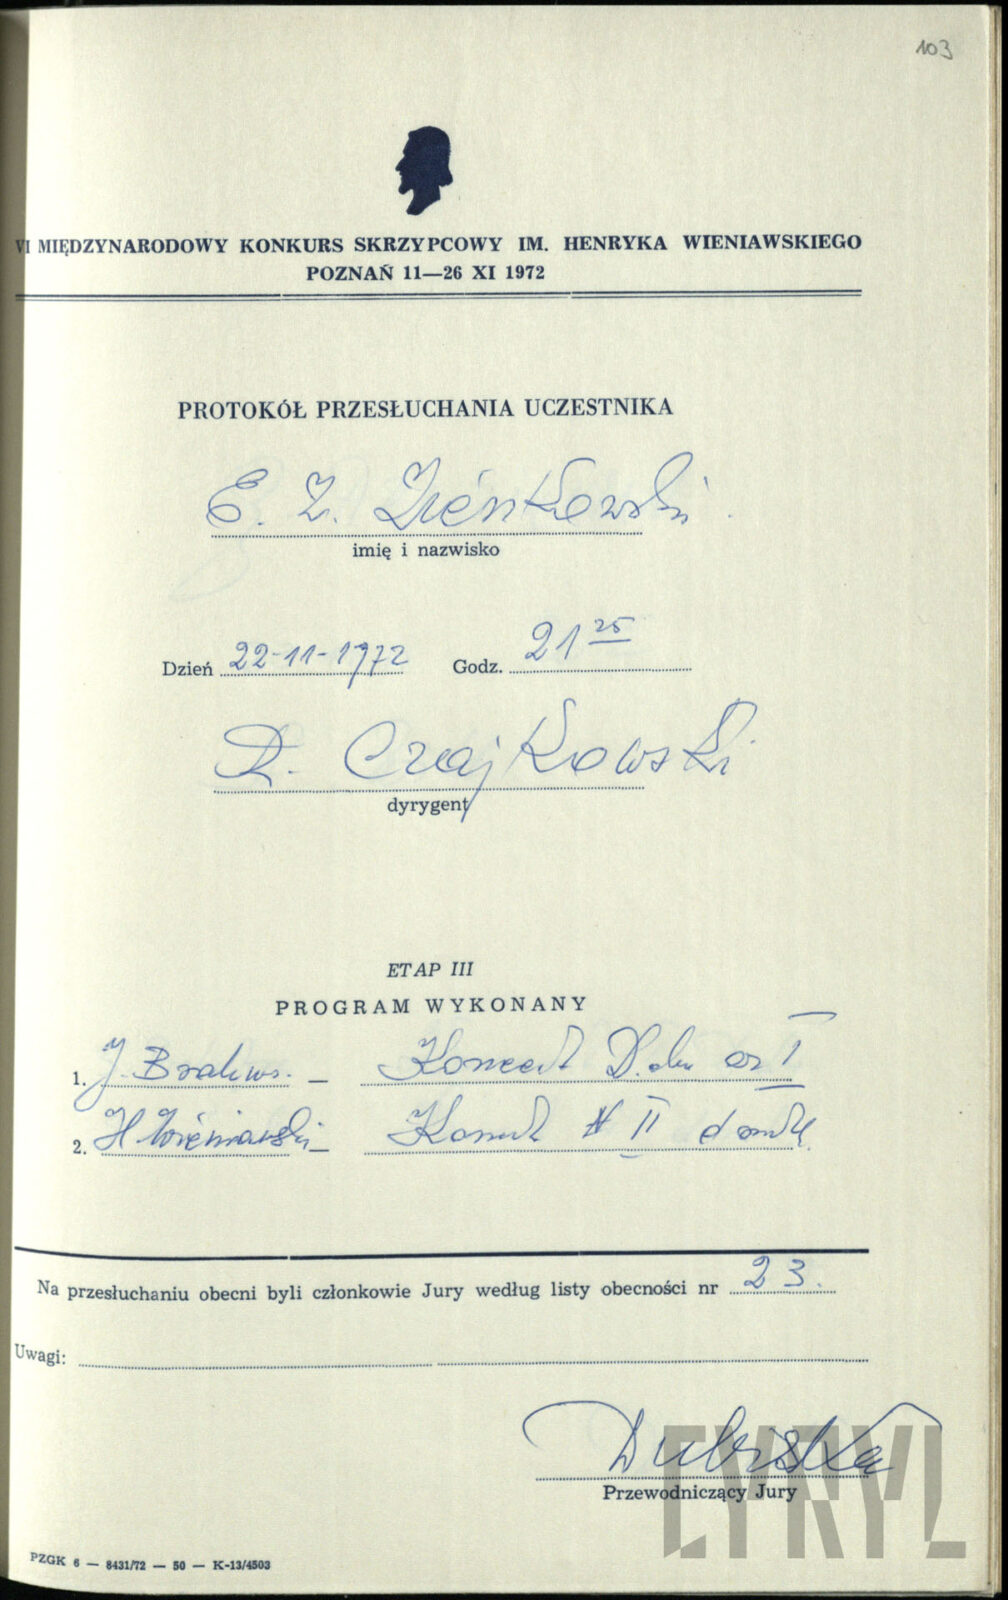 103
VI MIĘDZYNARODOWY KONKURS SKRZYPCOWY IM. HENRYKA WIENIAWSKIEGO
POZNAŃ 11—26 XI 1972
PROTOKÓŁ PRZESŁUCHANIA UCZESTNIKA
E. Z. Zieńkowski
imię i nazwisko
Dzień 22-11-1972 Godz. 21 25
R. Czajkowski
dyrygent
ETAP III
PROGRAM WYKONANY
1. J. Brahms. — Koncert D. dur cz I
2. H Wieniawski — Koncert # II d moll
Na przesłuchaniu obecni byli członkowie Jury według listy obecności nr 23.
Uwagi:
Dubiska
Przewodniczący Jury
CYRYL
PZGK 6 — 8431/72 — 50 — K-13/4503